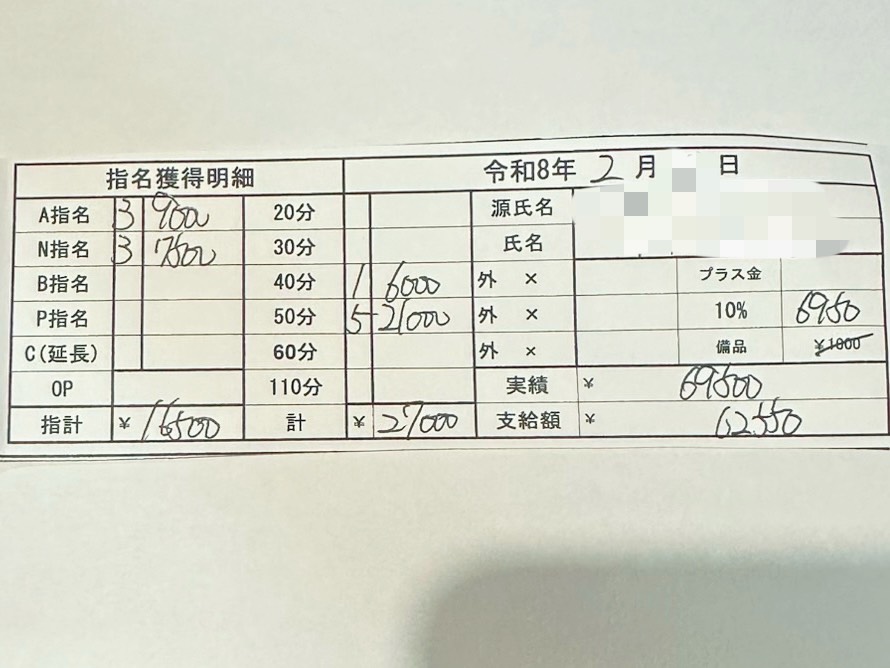 指名獲得明細 令和8年 2月 日
A指名 3 9000 20分 源氏名
N指名 3 7500 30分 氏名
B指名 40分 1 6000 外 × プラス金
P指名 50分 5 21000 外 × 10% 6950
C(延長) 60分 外 × 備品 ¥1000
OP 110分 実績 ¥ 69500
指計 ¥ 16500 計 ¥ 27000 支給額 ¥ 62550